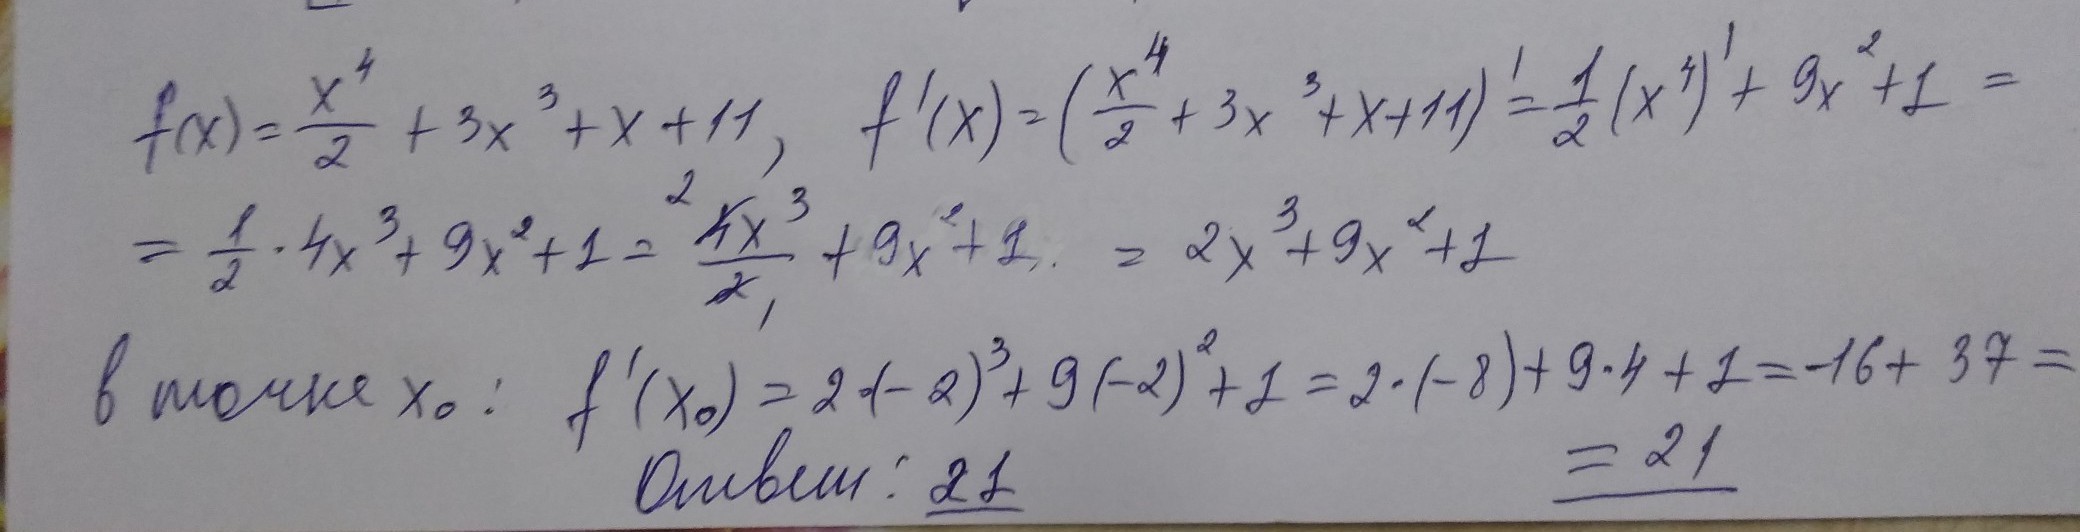 f(x) = x⁴/2 + 3x³ + x + 11, f'(x) = (x⁴/2 + 3x³ + x + 11)' = 1/2 (x⁴)' + 9x² + 1 =
= 1/2 · 4x³ + 9x² + 1 = 4x³/2 + 9x² + 1 = 2x³ + 9x² + 1
в точке x₀: f'(x₀) = 2·(-2)³ + 9(-2)² + 1 = 2·(-8) + 9·4 + 1 = -16 + 37 =
= 21
Ответ: 21